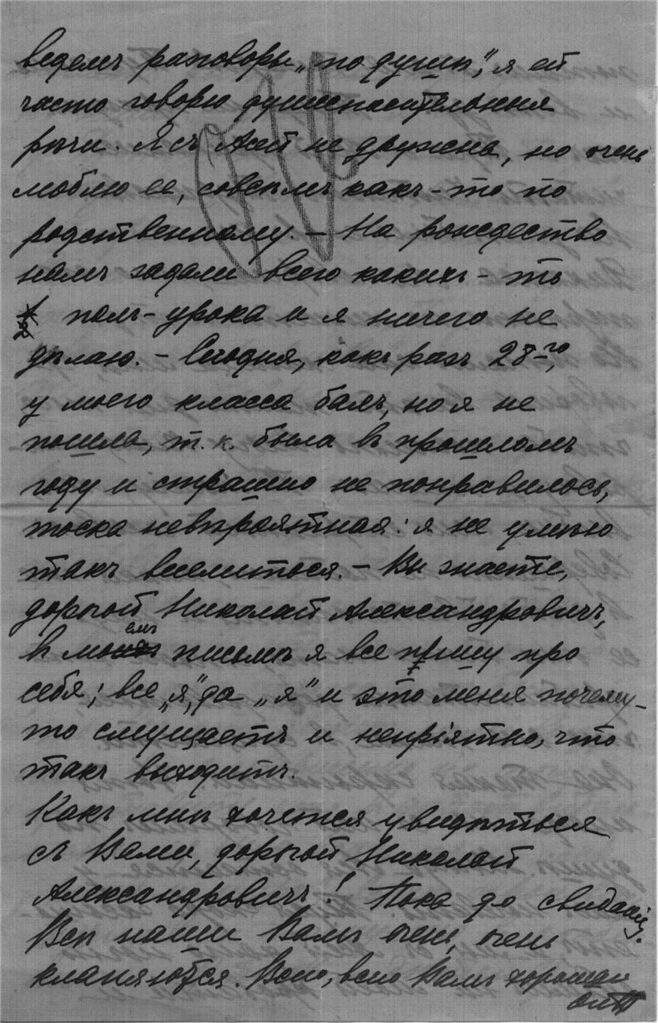 ведемъ разговоры „по душѣ", я ей
часто говорю душеспасительныя
рѣчи. Я съ Асей не дружна, но очень
люблю ее, совсѣмъ какъ-то по
родственному. – На рождество
намъ задали всего какихъ-то
полъ-урока и я ничего не
дѣлаю. – Сегодня, какъ разъ 28-го,
у моего класса балъ, но я не
пошла, т.к. была въ прошломъ
году и страшно не понравилось,
тоска невѣроятная: я не умѣю
такъ веселиться. – Вы знаете,
дорогой Николай Александровичъ,
въ моемъ письмѣ я все пишу про
себя; все „я", да „я" и это меня почему-
то смущаетъ и непріятно, что
такъ выходитъ.
Какъ мнѣ хочется увидѣться
съ Вами, дорогой Николай
Александровичъ! Пока до свиданія.
Всѣ наши Вамъ очень, очень
кланяются. Всего, всего Вамъ хорошаго